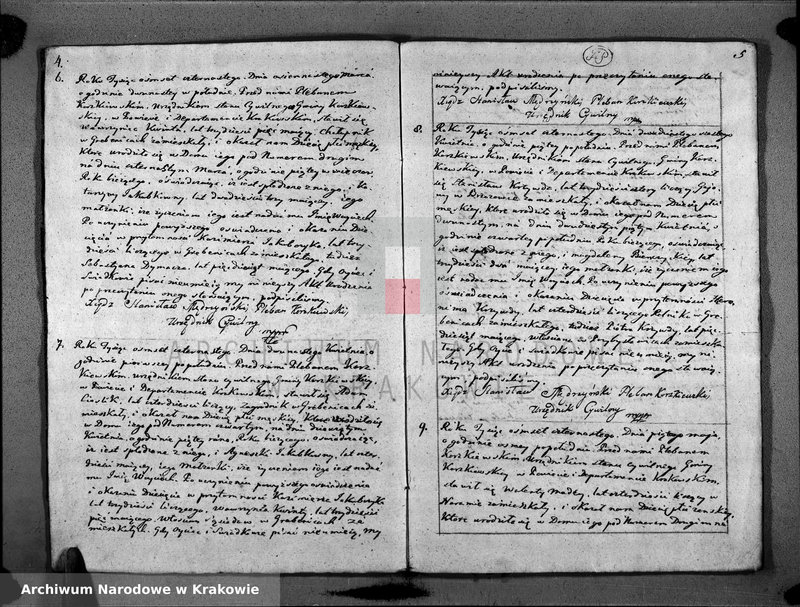 4.
6. Roku Tysiąc ośmset czternastego. Dnia osiemnastego Marca
o godzinie dwunastey w południe. Przed nami Plebanem
Korzkiewskim, Urzędnikiem Stanu Cywilnego Gminy Korzkiew-
skiey, w Powiecie i Departamencie Krakowskim, stawił się
Wawrzyniec Kwinta, lat trzydzieści pięć maiący, chałupnik
w Grębenicach zamieszkały, i okazał nam Dziecię płci męskiey,
które urodziło się w Domu iego pod Numerem drugim
na dniu czternastym Marca, o godzinie piątey w wieczor
Roku bieżącego, oświadczaiąc, iż iest spłodzone z niego, i Ka-
tarzyny Jakubkowny, lat dwadzieścia trzy maiącey, iego
małżonki, iże życzeniem iego iest nadać mu Imię Woyciech.
Po uczynieniu powyższego oświadczenia i okazaniu Dzie-
cięcia w przytomności Kazimierza Jakubczyka, lat trzy-
dzieści liczącego w Grębenicach zamieszkałego, tudzież
Sebastyana Dymacza, lat pięćdziesiąt maiącego. Gdy Oyciec i
Świadkowie pisać nieumieią, my ninieyszy Akt Urodzenia
po przeczytaniu onego stawaiącym, podpisaliśmy.
Xiądz Stanisław Mędrzyński Pleban Korzkiewski,
Urzędnik Cywilny
7. Roku Tysiąc ośmset czternastego. Dnia dziewiątego Kwietnia, o
godzinie pierwszey popołudniu. Przed nami Plebanem Korz-
kiewskim Urzędnikiem Stanu Cywilnego Gminy Korzkiewskiey,
w Powiecie i Departamencie Krakowskim, stawił się Adam
lat czterdzieści liczący, zagrodnik w Grębenicach za-
mieszkały, i okazał nam Dziecię płci męskiey, które urodziło się
w Domu iego pod Numerem czwartym, na dniu dziewiątym
Kwietnia, o godzinie piątey rano, Roku bieżącego, oświadczaiąc,
iż iest spłodzone z niego, i Agnieszki Jakubkowny, lat czter-
dzieści maiącey, iego małżonki, iże życzeniem iego iest nadać
mu Imię Woyciech. Po uczynieniu powyższego oświadczenia
i okazaniu Dziecięcia w przytomności Kazimierza Jakubczyka
lat trzydzieści liczącego, Wawrzyńca Kwinty, lat trzydzieści
pięć maiącego, Włościan i sąsiadow w Grębenicach za-
mieszkałych. Gdy Oyciec i Świadkowie pisać nieumieią, my
5
ninieyszy Akt Urodzenia po przeczytaniu onego sta-
waiącym, podpisaliśmy.
Xiądz Stanisław Mędrzyński Pleban Korzkiewski
Urzędnik Cywilny
8. Roku Tysiąc ośmset czternastego, Dnia dwudziestego szóstego
Kwietnia, o godzinie piątey popołudniu. Przed nami Plebanem
Korzkiewskim, Urzędnikiem Stanu Cywilnego, Gminy Korz-
kiewskiey, w Powiecie i Departamencie Krakowskim, stawił
się Stanisław Krzywda, lat trzydzieści cztery liczący,
w zamieszkały, i okazał nam Dziecię płci
męskiey, które urodziło się w Domu iego pod Numerem
dwunastym, na dniu dwudziestym piątym Kwietnia, o
godzinie czwartey popołudniu Roku bieżącego, oświadczaiąc
iż iest spłodzone z niego, i Magdaleny lat
trzydzieści dwa maiącey, iego małżonki, iż życzeniem iego
iest nadać mu Imię Woyciech. Po uczynieniu powyższego
oświadczenia i okazaniu Dziecięcia w przytomności
Krzywdy, lat czterdzieści liczącego Rolnika w Grę-
benicach zamieszkałego, tudzież Piotra Krzywdy, lat pięć-
dziesiąt maiącego, Włościan, w Przybysławicach zamieszka-
łego, Gdy Oyciec i świadkowie pisać nieumieią, my ni-
nieyszy Akt urodzenia po przeczytaniu onego stawaią-
cym, podpisaliśmy.
Xiądz Stanisław Mędrzyński Pleban Korzkiewski,
Urzędnik Cywilny
9. Roku Tysiąc ośmset czternastego, Dnia piątego Maja,
o godzinie osmey popołudniu. Przed nami Plebanem
Korzkiewskim Urzędnikiem Stanu Cywilnego Gminy
Korzkiewskiey w Powiecie i Departamencie Krakowskim,
stawił się Walenty Madey, lat czterdzieści liczący w
Naramie zamieszkały, i okazał nam Dziecię płci żenskiey,
które urodziło się w Domu iego pod Numerem Drugim na
ARCHIWUM NARODOWE
W KRAKOWIE
Archiwum Narodowe w Krakowie